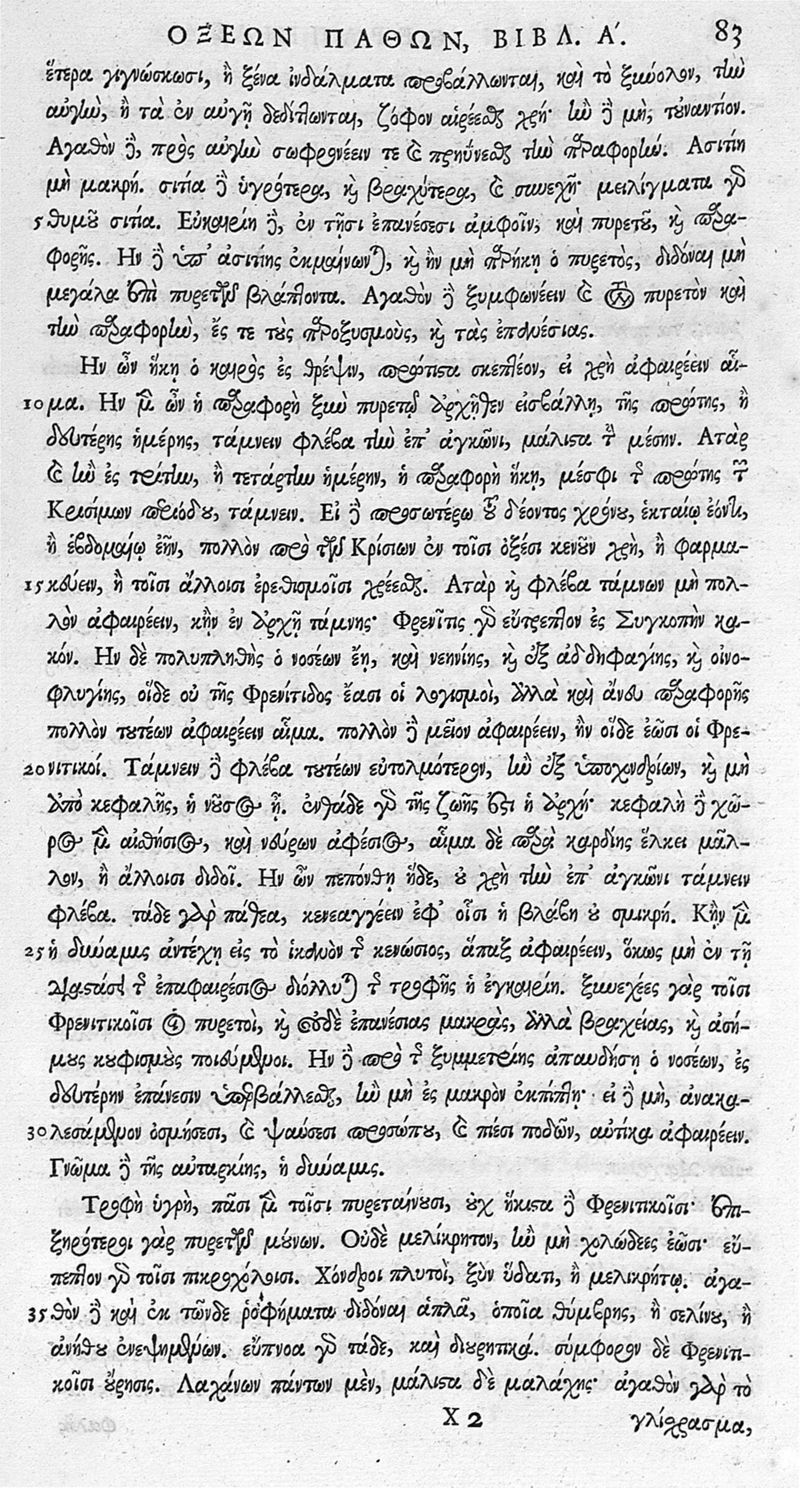 ΟΞΕΩΝ ΠΑΘΩΝ, ΒΙΒΛ. Α΄. 83
ἕτερα γιγνώσκωσι, ἢ ξένα ἰνδάλματα προβάλλωνται, καὶ τὸ ξύμολον, τὴν
αὐγὴν, ἢ τὰ ἐν αὐγῇ δεδίττωνται, ζόφον αἱρέεσθαι χρή· ἢν δὲ μὴ, τὐναντίον.
Αγαθὸν δὲ, πρὸς αὐγὴν σωφρονέειν τε καὶ πρηΰνεσθαι τὴν παραφορήν. Ασιτίη
μὴ μακρή. σιτία δὲ ὑγρότερα, καὶ βραχύτερα, καὶ συνεχῆ· μειλίγματα γὰρ
5 θυμοῦ σιτία. Εὐκαιρίη δὲ, ἐν τῇσι ἐπανέσεσι ἀμφοῖν, καὶ πυρετοῦ, καὶ παρα-
φορῆς. Ην δὲ ὑπ᾽ ἀσιτίης ἐκμαίνωνται, καὶ ἢν μὴ παρήκῃ ὁ πυρετὸς, διδόναι μὴ
μεγάλα ἐπὶ πυρετῷ βλάπτοντα. Αγαθὸν δὲ ξυμφωνέειν καὶ τὸν πυρετὸν καὶ
τὴν παραφορὴν, ἔς τε τοὺς παροξυσμοὺς, καὶ τὰς ἐπανέσιας.
Ην ὦν ἥκῃ ὁ καιρὸς ἐς θρέψιν, πρώτιστα σκεπτέον, εἰ χρὴ ἀφαιρέειν αἷ-
10 μα. Ην μὲν ὦν ἡ παραφορὴ ξὺν πυρετῷ ἀρχῆθεν εἰσβάλλῃ, τῆς πρώτης, ἢ
δευτέρης ἡμέρης, τάμνειν φλέβα τὴν ἐπ᾽ ἀγκῶνι, μάλιστα τὴν μέσην. Ατὰρ
καὶ ἢν ἐς τρίτην, ἢ τετάρτην ἡμέρην, ἡ παραφορὴ ἥκῃ, μέσφι τῆς πρώτης τῶν
Κρισίμων περιόδου, τάμνειν. Εἰ δὲ προσωτέρω τοῦ δέοντος χρόνου, ἑκταίῳ ἐόντι,
ἢ ἑβδομαίῳ ἐῆν, πολλὸν πρὸ τῶν Κρίσιων ἐν τοῖσι ὀξέσι κενοῦν χρὴ, ἢ φαρμα-
15 κεύειν, ἢ τοῖσι ἄλλοισι ἐρεθισμοῖσι χρέεσθαι. Ατὰρ καὶ φλέβα τάμνων μὴ πολ-
λὸν ἀφαιρέειν, κἢν ἐν ἀρχῇ τάμνῃς· Φρενῖτις γὰρ εὔτρεπτον ἐς Συγκοπὴν κα-
κόν. Ην δὲ πολυπληθὴς ὁ νοσέων ἔῃ, καὶ νεηνίης, καὶ ἐξ ἀδδηφαγίης, καὶ οἰνο-
φλυγίης, οἵδε οὐ τῆς Φρενίτιδος ἔασι οἱ λογισμοὶ, ἀλλὰ καὶ ἄνευ παραφορῆς
πολλὸν τουτέων ἀφαιρέειν αἷμα. πολλὸν δὲ μεῖον ἀφαιρέειν, ἢν οἵδε ἐῶσι οἱ Φρε-
20 νιτικοί. Τάμνειν δὲ φλέβα τουτέων εὐτολμότερον, ἢν ἐξ ὑποχονδρίων, καὶ μὴ
ἀπὸ κεφαλῆς, ἡ νοῦσος ᾖ. ἐνθάδε γὰρ τῆς ζωῆς ἐστι ἡ ἀρχή· κεφαλὴ δὲ χῶ-
ρος μὲν αἰσθήσιος, καὶ νεύρων ἀφέσιος, αἷμα δὲ παρὰ καρδίης ἕλκει μᾶλ-
λον, ἢ ἄλλοισι διδοῖ. Ην ὦν πεπόνθῃ ἥδε, οὐ χρὴ τὴν ἐπ᾽ ἀγκῶνι τάμνειν
φλέβα. τάδε γὰρ πάθεα, κενεαγγέειν ἐφ᾽ οἷσι ἡ βλάβη οὐ σμικρή. Κἢν μὲν
25 ἡ δύναμις ἀντέχῃ εἰς τὸ ἱκανὸν τῆς κενώσιος, ἅπαξ ἀφαιρέειν, ὅκως μὴ ἐν τῇ
διαστάσει τῆς ἐπαφαιρέσιος διόλλυται τῆς τροφῆς ἡ ἐγκαιρίη. ξυνεχέες γὰρ τοῖσι
Φρενιτικοῖσι οἱ πυρετοὶ, καὶ οὐδὲ ἐπανέσιας μακρὰς, ἀλλὰ βραχείας, καὶ ἀσή-
μους κουφισμοὺς ποιεύμενοι. Ην δὲ πρὸ τῆς ξυμμετρίης ἀπαυδήσῃ ὁ νοσέων, ἐς
δευτέρην ἐπάνεσιν ὑπερβάλλεσθαι, ἢν μὴ ἐς μακρὸν ἐκπίπτῃ· εἰ δὲ μὴ, ἀνακα-
30 λεσάμενον ὀσμήσεσι, καὶ ψαύσεσι προσώπου, καὶ πιέσι ποδῶν, αὐτίκα ἀφαιρέειν.
Γνῶμα δὲ τῆς αὐταρκίης, ἡ δύναμις.
Τροφὴ ὑγρὴ, πᾶσι μὲν τοῖσι πυρεταίνουσι, οὐχ ἥκιστα δὲ Φρενιτικοῖσι· ἐπι-
ξηρότεροι γὰρ πυρετῶν μούνων. Οὐδὲ μελίκρητον, ἢν μὴ χολώδεες ἐῶσι· εὔ-
πεπτον γὰρ τοῖσι πικροχόλοισι. Χόνδροι πλυτοὶ, ξὺν ὕδατι, ἢ μελικρήτῳ. ἀγα-
35 θὸν δὲ καὶ ἐκ τῶνδε ῥοφήματα διδόναι ἁπλᾶ, ὁποῖα θύμβρης, ἢ σελίνου, ἢ
ἀνήθου ἐνεψημένων. εὔπνοα γὰρ τάδε, καὶ διουρητικά. σύμφορον δὲ Φρενιτι-
κοῖσι οὔρησις. Λαχάνων πάντων μὲν, μάλιστα δὲ μαλάχης· ἀγαθὸν γὰρ τὸ
X 2 γλίσχρασμα,